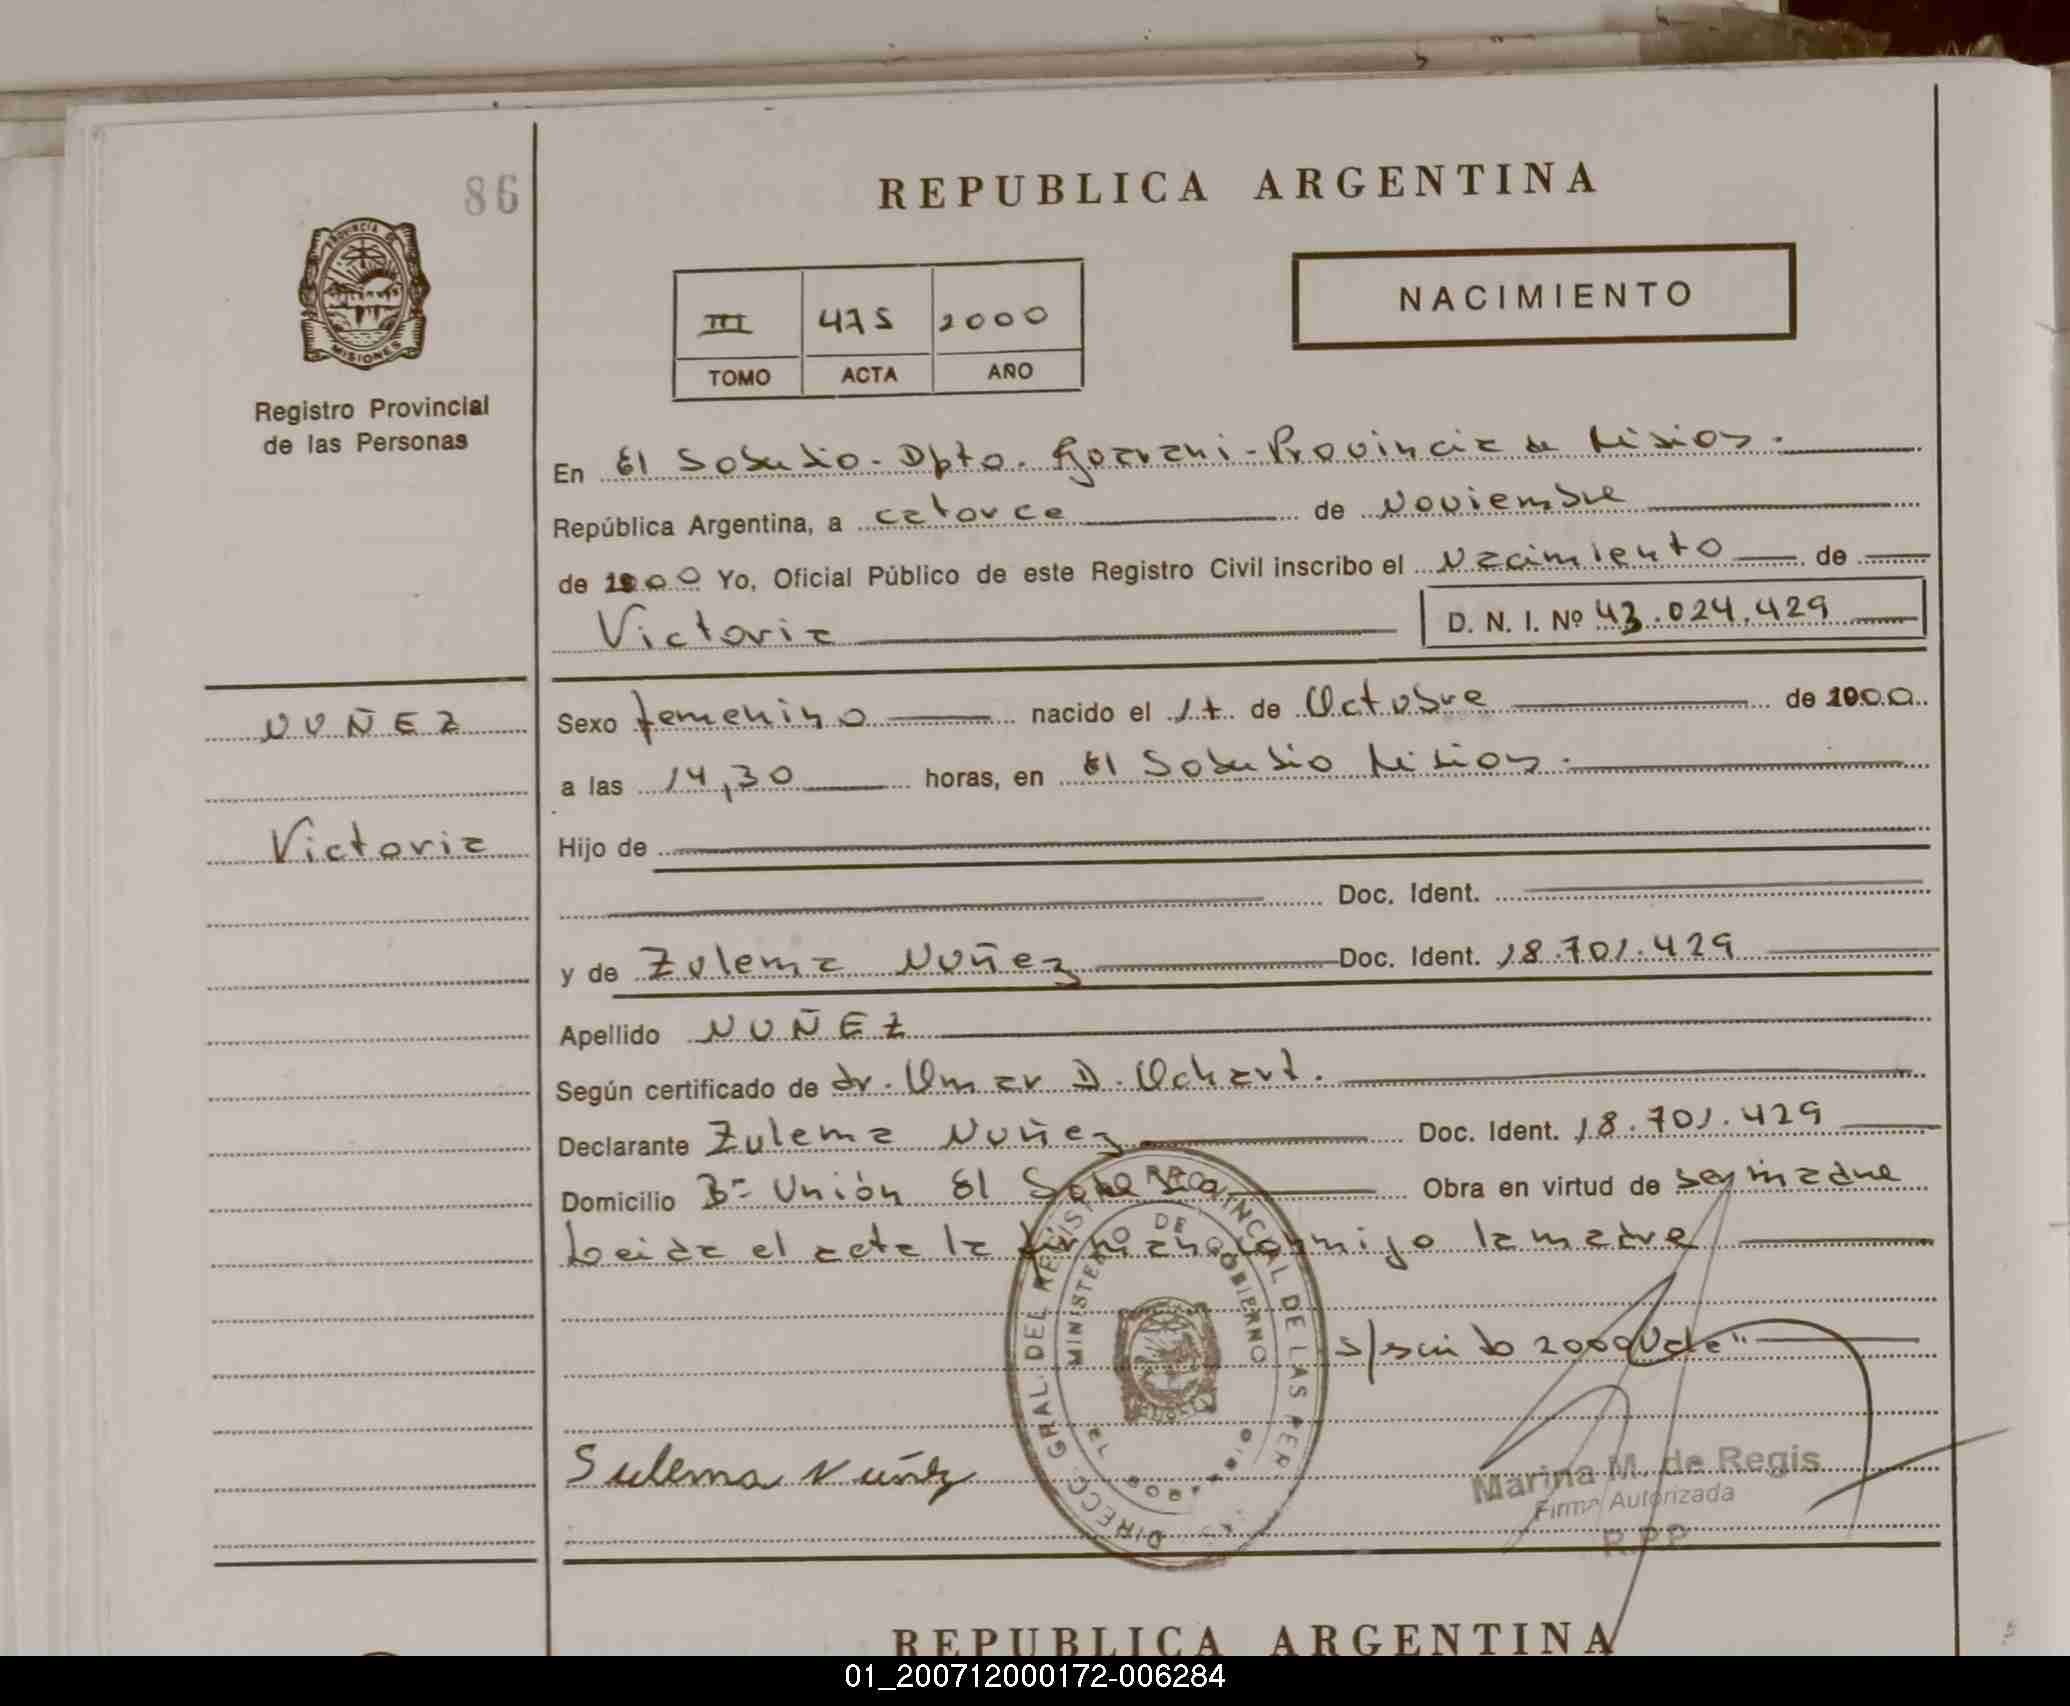 86
REPUBLICA ARGENTINA
PROVINCIA DE
MISIONES
Registro Provincial
de las Personas
III 475 2000
TOMO ACTA AÑO
NACIMIENTO
En El Soberbio - Dpto. Guarani - Provincia de Misiones.
República Argentina, a catorce de Noviembre
de 2000 Yo, Oficial Público de este Registro Civil inscribo el Nacimiento de
Victoria D. N. I. Nº 43.024.429
NUÑEZ
Victoria
Sexo femenino nacido el 17 de Octubre de 2000
a las 14,30 horas, en El Soberbio Misiones.
Hijo de
Doc. Ident.
y de Zulema Nuñez Doc. Ident. 18.701.429
Apellido NUÑEZ
Según certificado de dr. Omar D. Ochart.
Declarante Zulema Nuñez Doc. Ident. 18.701.429
Domicilio Bº Unión El Soberbio Obra en virtud de ser madre
Leida el acta la firman conmigo la madre
DIRECC. GRAL. DEL REGIST. PROVINCIAL DE LAS PER
MINISTERIO DE GOBIERNO
EL SOBERBIO
2000 Vale"
Sulema Nuñez
Marina M. de Regis
Firma Autorizada
R.P.P
REPUBLICA ARGENTINA
01_200712000172-006284